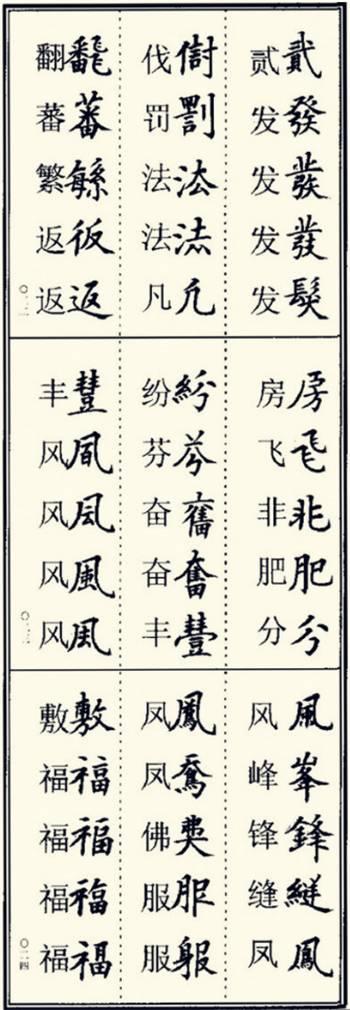 贰貳 发發 发 发 发髮
伐 罚罰 法㳒 法 凡凢
翻飜 蕃蕃 繁 返仮 返返
〇二二
房房 飞飞 非非 肥肥 分分
纷紛 芬芬 奋奮 奋奮 丰豐
丰豐 风凬 风凨 风風 风
〇二三
风風 峰峯 锋鋒 缝縫 凤鳳
凤鳳 凤 佛 服服 服
敷敷 福福 福福 福福 福福
〇二四